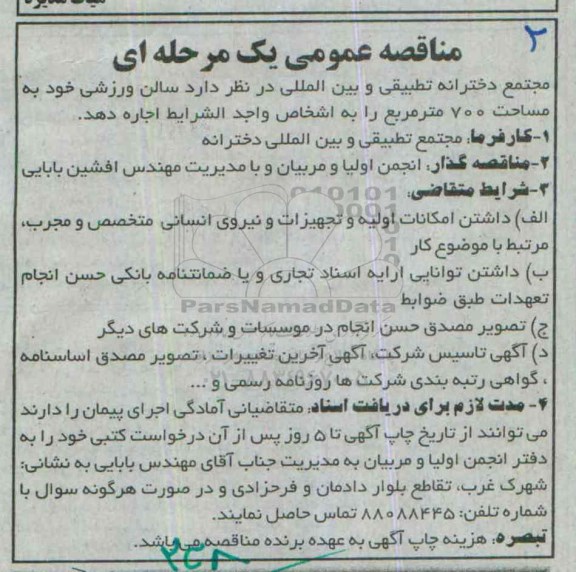 ۲
مناقصه عمومی یک مرحله ای
مجتمع دخترانه تطبیقی و بین المللی در نظر دارد سالن ورزشی خود به
مساحت ۷۰۰ مترمربع را به اشخاص واجد الشرایط اجاره دهد.
۱-کارفرما: مجتمع تطبیقی و بین المللی دخترانه
۲-مناقصه گذار: انجمن اولیا و مربیان و با مدیریت مهندس افشین بابایی
۳-شرایط متقاضی:
الف) داشتن امکانات اولیه و تجهیزات و نیروی انسانی متخصص و مجرب،
مرتبط با موضوع کار
ب) داشتن توانایی ارایه اسناد تجاری و یا ضمانتنامه بانکی حسن انجام
تعهدات طبق ضوابط
ParsNamadData
ج) تصویر مصدق حسن انجام در موسسات و شرکت های دیگر
د) آگهی تاسیس شرکت، آگهی آخرین تغییرات ، تصویر مصدق اساسنامه
، گواهی رتبه بندی شرکت ها روزنامه رسمی و ...
۴- مدت لازم برای دریافت اسناد: متقاضیانی آمادگی اجرای پیمان را دارند
می توانند از تاریخ چاپ آگهی تا ۵ روز پس از آن درخواست کتبی خود را به
دفتر انجمن اولیا و مربیان به مدیریت جناب آقای مهندس بابایی به نشانی:
شهرک غرب، تقاطع بلوار دادمان و فرحزادی و در صورت هرگونه سوال با
شماره تلفن: ۸۸۰۸۸۴۴۵ تماس حاصل نمایند.
تبصره: هزینه چاپ آگهی به عهده برنده مناقصه می باشد.